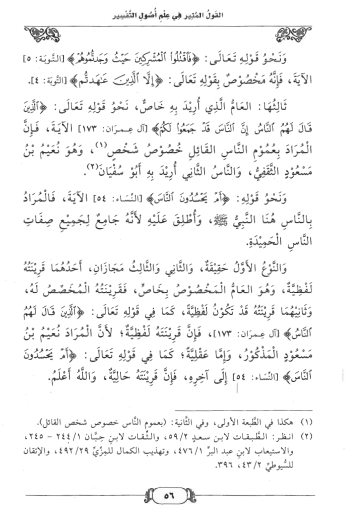 القول المنير في علم أصول التفسير
وَنَحْوُ قَوْلِهِ تَعَالَى: ﴿فَاقْتُلُوا الْمُشْرِكِينَ حَيْثُ وَجَدْتُمُوهُمْ﴾ [التَّوبَة: ٥]
الآيَةَ، فَإِنَّهُ مَخْصُوصٌ بِقَوْلِهِ تَعَالَى: ﴿إِلَّا الَّذِينَ عَاهَدْتُمْ﴾ [التَّوبَة: ٤].
ثَالِثُهَا: العَامُّ الَّذِي أُرِيدَ بِهِ خَاصٌّ، نَحْوُ قَوْلِهِ تَعَالَى: ﴿الَّذِينَ
قَالَ لَهُمُ النَّاسُ إِنَّ النَّاسَ قَدْ جَمَعُوا لَكُمْ﴾ [آل عِمرَان: ١٧٣] الآيَةَ، فَإِنَّ
الْمُرَادَ بِعُمُومِ النَّاسِ القَائِلِ خُصُوصُ شَخْصٍ(١)، وَهُوَ نُعَيْمُ بْنُ
مَسْعُودٍ الثَّقَفِيُّ، وَالنَّاسُ الثَّانِي أُرِيدَ بِهِ أَبُو سُفْيَانَ(٢).
وَنَحْوُ قَوْلِهِ: ﴿أَمْ يَحْسُدُونَ النَّاسَ﴾ [النِّسَاء: ٥٤] الآيَةَ، فَالْمُرَادُ
بِالنَّاسِ هُنَا النَّبِيُّ ﷺ، وَأُطْلِقَ عَلَيْهِ لِأَنَّهُ جَامِعٌ لِجَمِيعِ صِفَاتِ
النَّاسِ الْحَمِيدَةِ.
وَالنَّوْعُ الأَوَّلُ حَقِيقَةٌ، وَالثَّانِي وَالثَّالِثُ مَجَازَانِ، أَحَدُهُمَا قَرِينَتُهُ
لَفْظِيَّةٌ، وَهُوَ العَامُّ الْمَخْصُوصُ بِخَاصٍّ، فَقَرِينَتُهُ الْمُخَصِّصُ لَهُ،
وَثَانِيهُمَا قَرِينَتُهُ قَدْ تَكُونُ لَفْظِيَّةً، كَمَا فِي قَوْلِهِ تَعَالَى: ﴿الَّذِينَ قَالَ لَهُمُ
النَّاسُ﴾ [آل عِمرَان: ١٧٣]، فَإِنَّ قَرِينَتَهُ لَفْظِيَّةٌ؛ لأَنَّ الْمُرَادَ نُعَيْمُ بْنُ
مَسْعُودٍ الْمَذْكُورُ، وَإِمَّا عَقْلِيَّةٌ؛ كَمَا فِي قَوْلِهِ تَعَالَى: ﴿أَمْ يَحْسُدُونَ
النَّاسَ﴾ [النِّسَاء: ٥٤] إِلَى آخِرِهِ، فَإِنَّ قَرِينَتَهُ حَالِيَّةٌ، وَاللهُ أَعْلَمُ.
(١) هكذا في الطَّبعة الأولى، وفي الثَّانية: (بعموم النَّاس خصوص شخص القائل).
(٢) انظر: الطَّبقات لابن سعد ٥٩/٢، والثِّقات لابن حِبَّان ٢٤٤/١ - ٢٤٥،
والاستيعاب لابن عبد البرِّ ٤٧٦/١، وتهذيب الكمال للمِزِّيِّ ٤٩٢/٢٩،
للسُّيوطيِّ ٤٣/٢، ٣٩٦.
٥٦